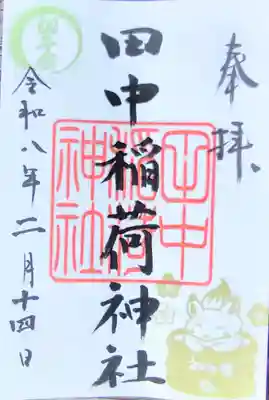 奉拝
田中稲荷神社
令和八年二月十四日
田中
稲荷
神社